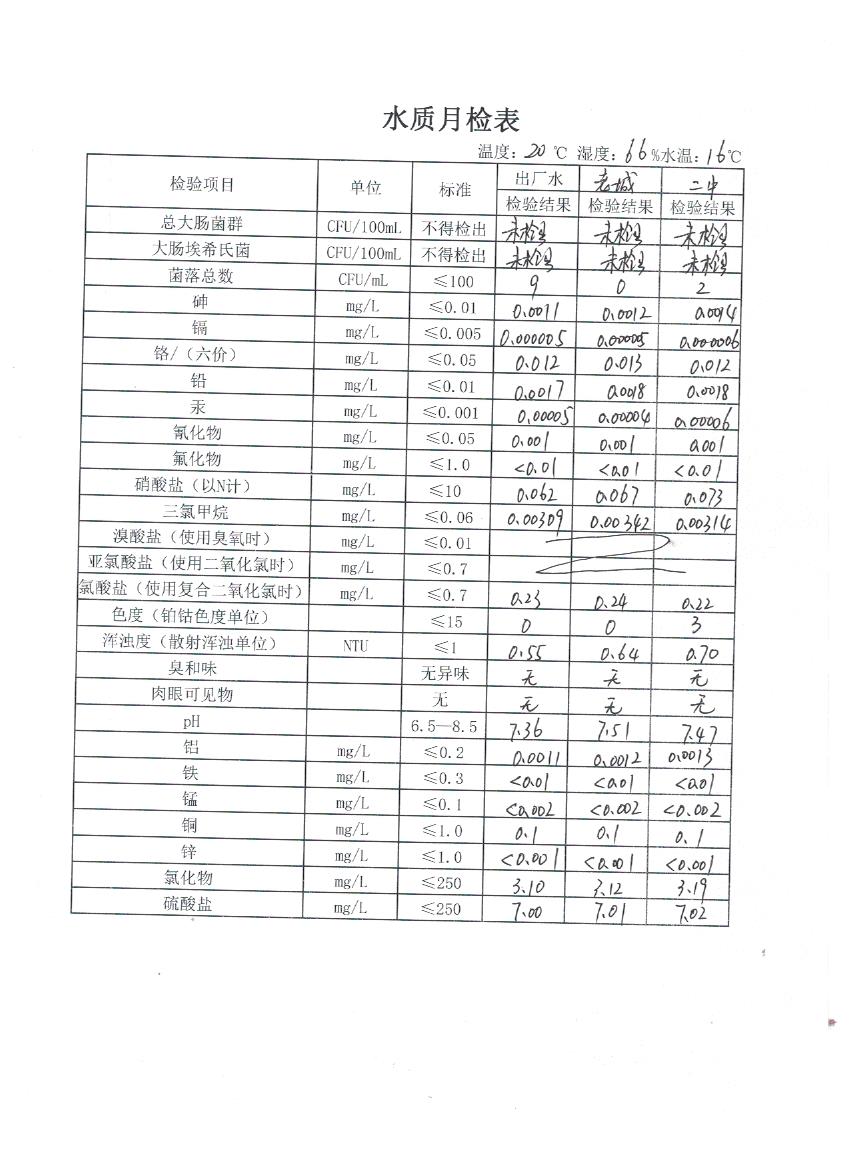 水质月检表
温度：20 ℃ 湿度：66 %水温：16℃
检验项目 单位 标准 出厂水 老城 二中
检验结果 检验结果 检验结果
总大肠菌群 CFU/100mL 不得检出 未检出 未检出 未检出
大肠埃希氏菌 CFU/100mL 不得检出 未检出 未检出 未检出
菌落总数 CFU/mL ≤100 9 0 2
砷 mg/L ≤0.01 0.0011 0.0012 0.0014
镉 mg/L ≤0.005 0.000005 0.00005 0.000006
铬/（六价） mg/L ≤0.05 0.012 0.013 0.012
铅 mg/L ≤0.01 0.0017 0.0018 0.0018
汞 mg/L ≤0.001 0.00005 0.00004 0.00006
氰化物 mg/L ≤0.05 0.001 0.001 0.001
氟化物 mg/L ≤1.0 <0.01 <0.01 <0.01
硝酸盐（以N计） mg/L ≤10 0.062 0.067 0.073
三氯甲烷 mg/L ≤0.06 0.00309 0.00342 0.00314
溴酸盐（使用臭氧时） mg/L ≤0.01
亚氯酸盐（使用二氧化氯时） mg/L ≤0.7
氯酸盐（使用复合二氧化氯时） mg/L ≤0.7 0.23 0.24 0.22
色度（铂钴色度单位） ≤15 0 0 3
浑浊度（散射浑浊单位） NTU ≤1 0.55 0.64 0.70
臭和味 无异味 无 无 无
肉眼可见物 无 无 无 无
pH 6.5—8.5 7.36 7.51 7.47
铝 mg/L ≤0.2 0.0011 0.0012 0.0013
铁 mg/L ≤0.3 <0.01 <0.01 <0.01
锰 mg/L ≤0.1 <0.002 <0.002 <0.002
铜 mg/L ≤1.0 0.1 0.1 0.1
锌 mg/L ≤1.0 <0.001 <0.001 <0.001
氯化物 mg/L ≤250 3.10 3.12 3.19
硫酸盐 mg/L ≤250 7.00 7.01 7.02